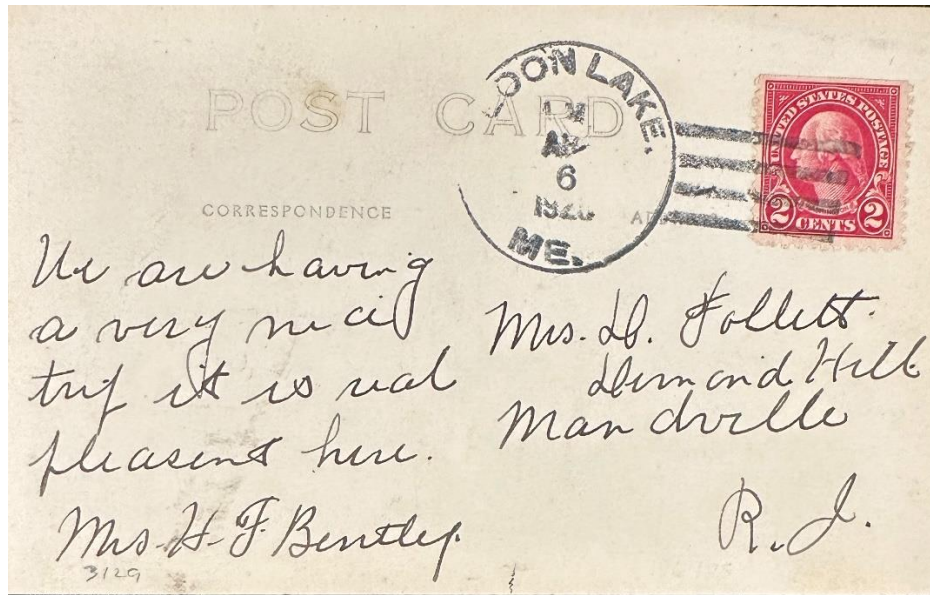 POST CARD
CORRESPONDENCE
LOON LAKE.
6
ME.
UNITED STATES POSTAGE
2 CENTS 2
We are having
a very nice
trip it is real
pleasent here.
Mrs. H. F. Bentley.
3129
Mrs. D. Follett.
Dimond Hill
Mandville
R.I.